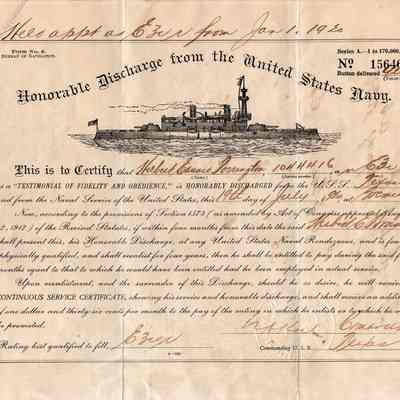 as from Jan 1, 192
FORM No. 6.
BUREAU OF NAVIGATION.
Series A.—1 to 170,000.
No 1564
Button delivered
Honorable Discharge from the United States Navy.
This is to Certify that Herbert 1044416
(Name.) (Service number.)
is a "TESTIMONIAL OF FIDELITY AND OBEDIENCE," is HONORABLY DISCHARGED from the U. S. S. Texas
and from the Naval Service of the United States, this 19th day of July
Now, according to the provisions of Section 1573 (as amended by Act of Congress approved
2, 1912) of the Revised Statutes, if within four months from this date the said Herbert
shall present this, his Honorable Discharge, at any United States Naval Rendezvous, and is fou
physically qualified, and shall reenlist for four years, then he shall be entitled to pay during the said f
months equal to that to which he would have been entitled had he been employed in actual service.
Upon reenlistment, and the surrender of this Discharge, should he so desire, he will receive
CONTINUOUS SERVICE CERTIFICATE, showing his service and honorable discharge, and shall receive an additio
of one dollar and thirty-six cents per month to the pay of the rating in which he enlists or to which he m
be promoted.
Rating best qualified to fill,
Commanding U. S. S. Texas